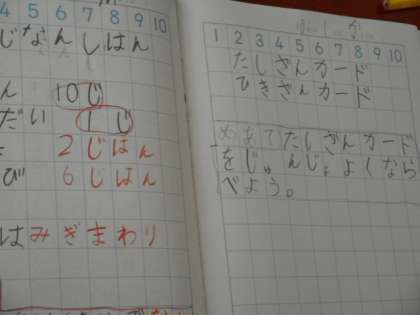 4 5 6 7 8 9 10
じなんしはん
ん 10じ
だい 1じ
2じはん
び 6じはん
はみぎまわり
1 2 3 4 5 6 7 8 9 10
たしざんカード
ひきざんカード
めあてたしざんカード
をじゅんじょよくなら
べよう。